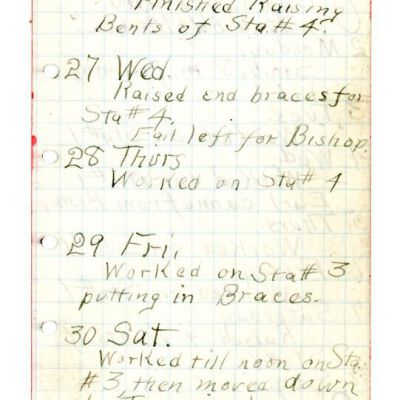 Finished Raising
Bents of Sta # 4.
27 Wed.
Raised end braces for
Sta # 4.
left for Bishop.
28 Thurs
Worked on Sta # 4
29 Fri,
Worked on Sta # 3
putting in Braces.
30 Sat.
Worked till noon on Sta.
# 3, then moved down